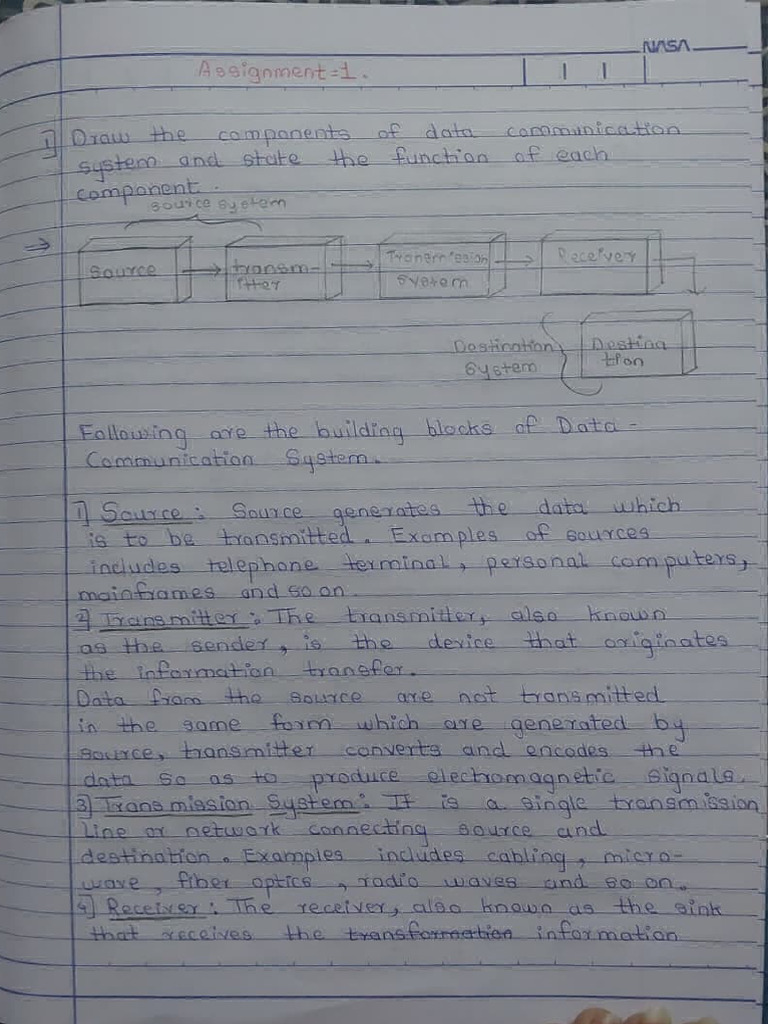 NASA
Assignment=1.
1] Draw the components of data communication
system and state the function of each
component.
source system
⇒
source
transm-
itter
Transmission
system
Receiver
Destination
System
Destina
tion
Following are the building blocks of Data-
Communication System.
1] Source: Source generates the data which
is to be transmitted. Examples of sources
includes telephone terminal, personal computers,
mainframes and so on.
2] Transmitter: The transmitter, also known
as the sender, is the device that originates
the information transfer.
Data from the source are not transmitted
in the same form which are generated by
source, transmitter converts and encodes the
data so as to produce electromagnetic signals.
3] Transmission System: It is a single transmission
line or network connecting source and
destination. Examples includes cabling, micro-
wave, fiber optics, radio waves and so on.
4] Receiver: The receiver, also known as the sink
that receives the transformation information